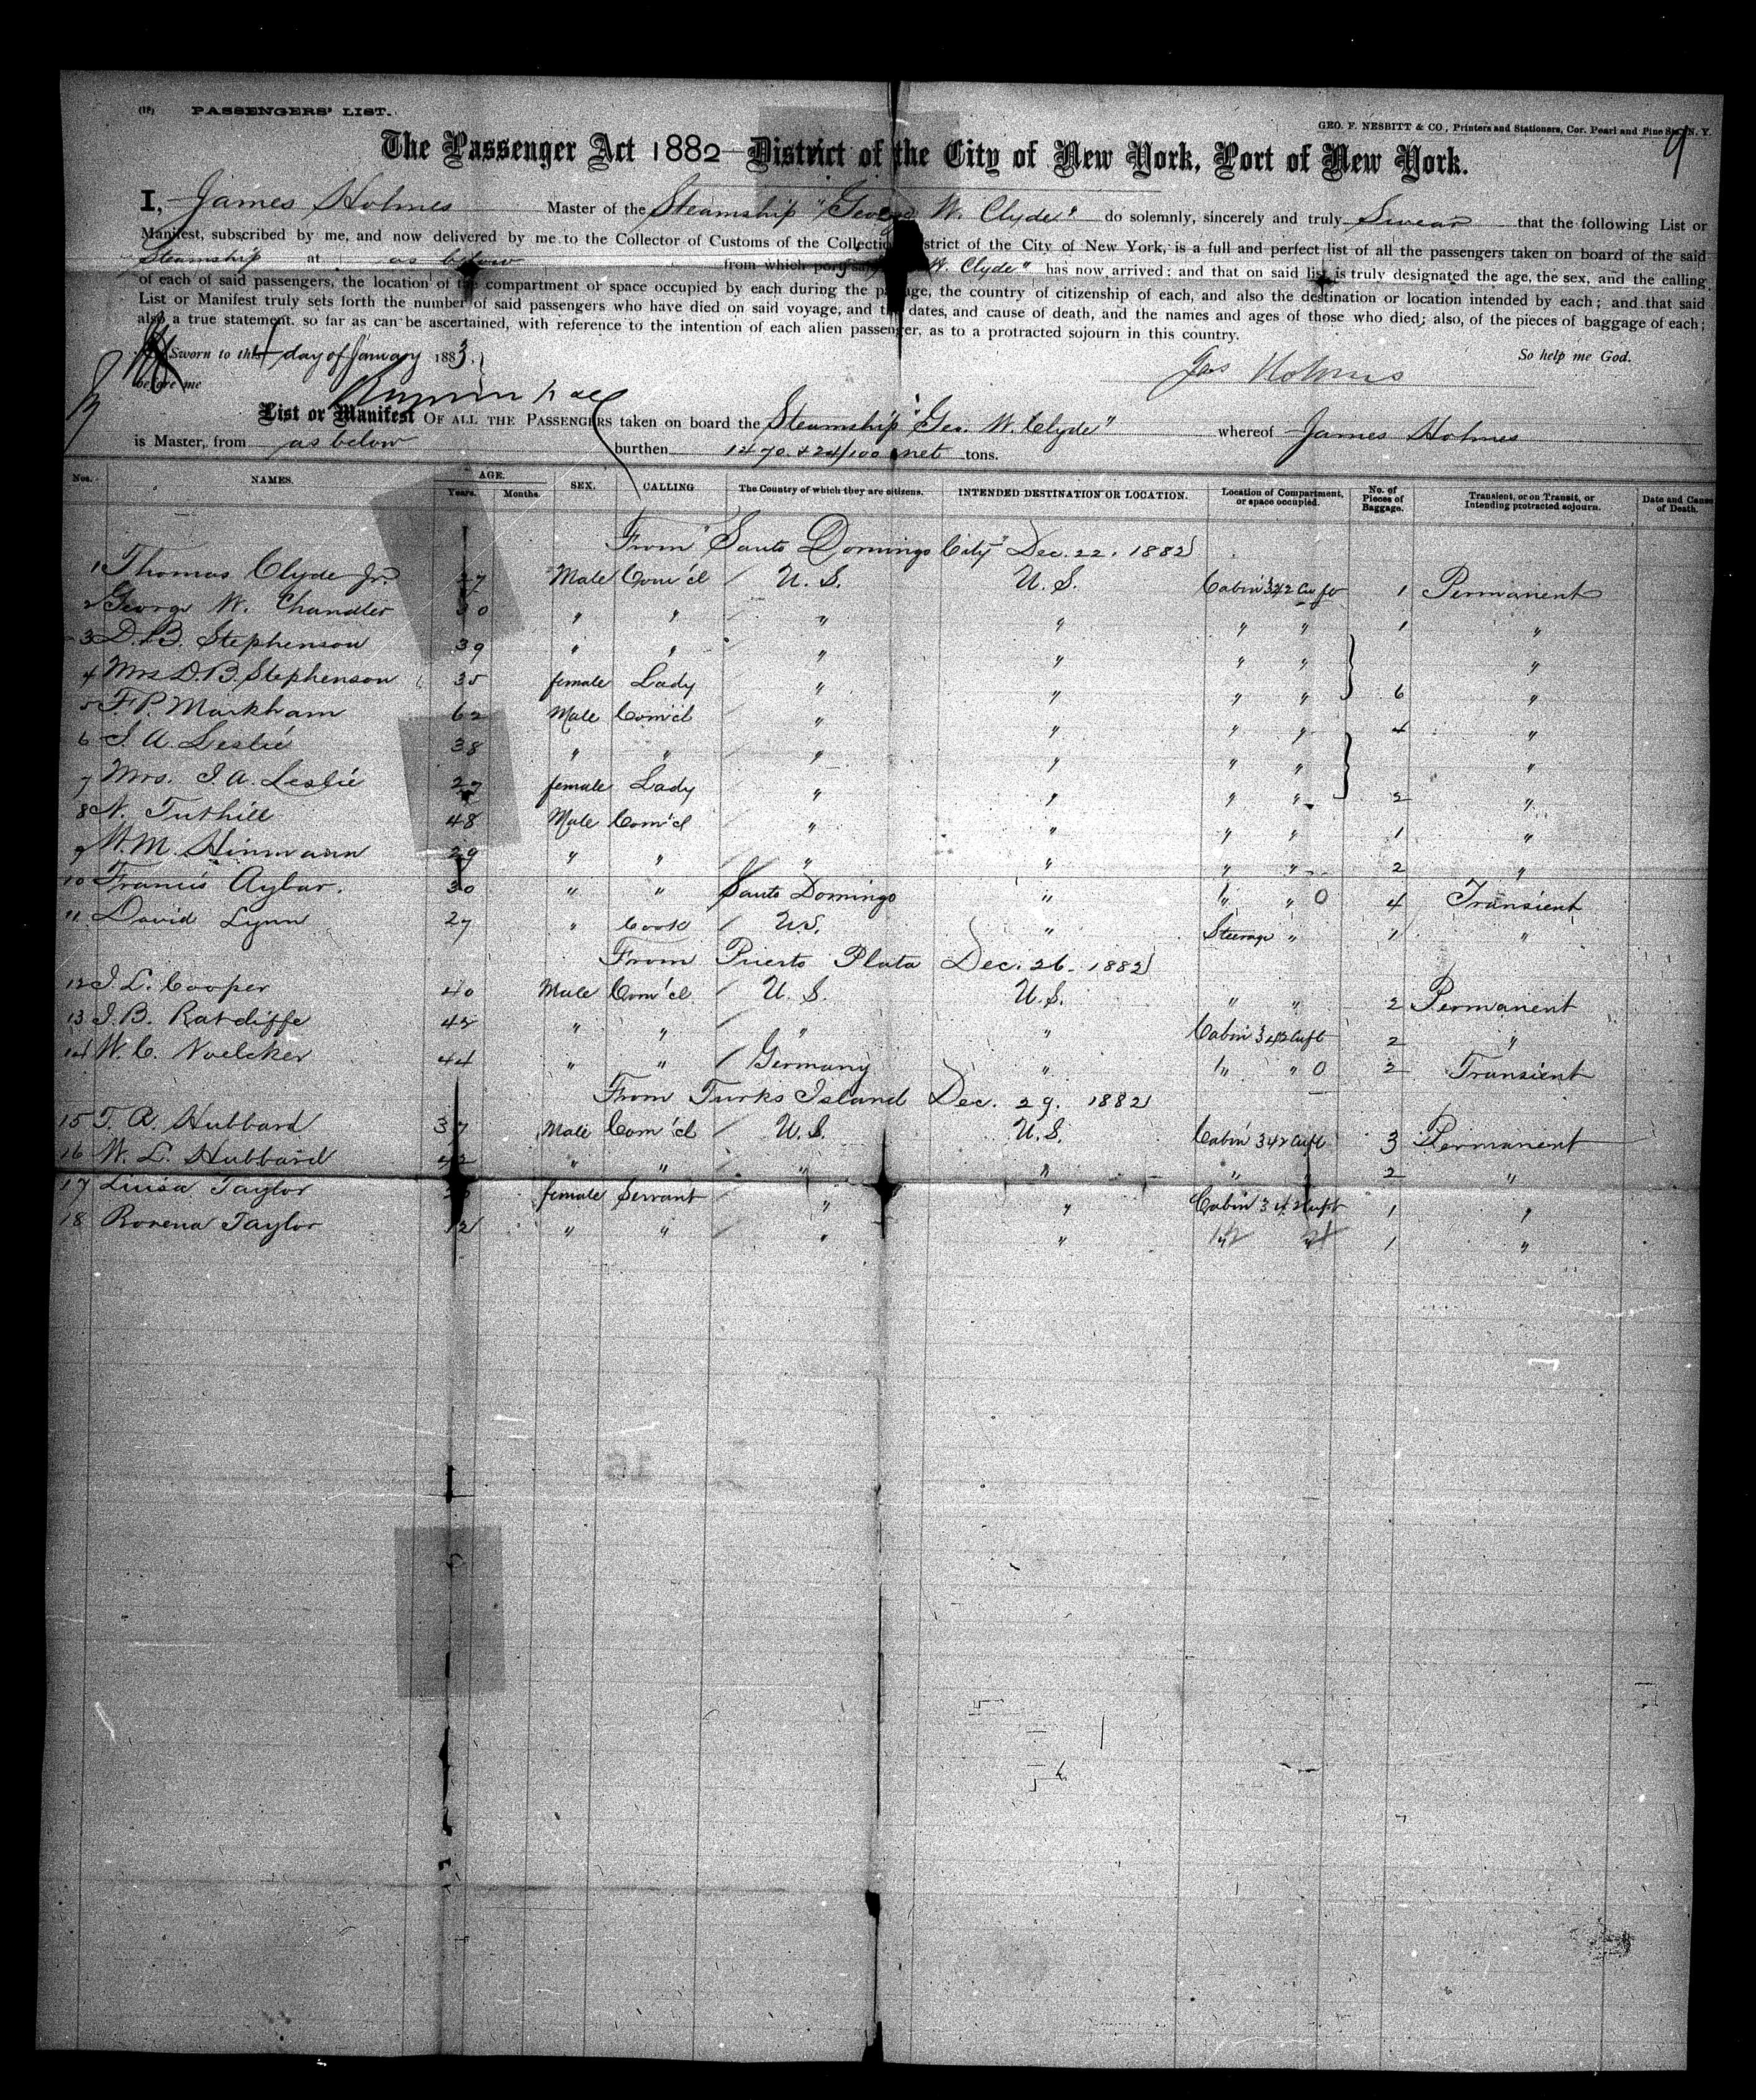 (17) PASSENGERS' LIST.
GEO. F. NESBITT & CO., Printers and Stationers, Cor. Pearl and Pine Sts., N. Y.
The Passenger Act 1882 District of the City of New York, Port of New York.
I, James Holmes Master of the Steamship "George W. Clyde" do solemnly, sincerely and truly Swear that the following List or
Manifest, subscribed by me, and now delivered by me to the Collector of Customs of the Collection District of the City of New York, is a full and perfect list of all the passengers taken on board of the said
Steamship at as below from which port said W. Clyde" has now arrived: and that on said list is truly designated the age, the sex, and the calling
of each of said passengers, the location of the compartment or space occupied by each during the passage, the country of citizenship of each, and also the destination or location intended by each; and that said
List or Manifest truly sets forth the number of said passengers who have died on said voyage, and the dates, and cause of death, and the names and ages of those who died; also, of the pieces of baggage of each;
also a true statement, so far as can be ascertained, with reference to the intention of each alien passenger, as to a protracted sojourn in this country.
Sworn to this 4 day of January 1883. So help me God.
before me Jas Holmes
List or Manifest OF ALL THE PASSENGERS taken on board the Steamship "Geo. W. Clyde" whereof James Holmes
is Master, from as below burthen 1470 & 24/100 net tons.
Nos. NAMES. AGE. Years. Months. SEX. CALLING The Country of which they are citizens. INTENDED DESTINATION OR LOCATION. Location of Compartment, or space occupied. No. of Pieces of Baggage. Transient, or on Transit, or Intending protracted sojourn. Date and Cause of Death.
From "Santo Domingo City" Dec. 22. 1882
1 Thomas Clyde Jr. 27 Male Com'cl / U.S. U.S. Cabin 342 Cu ft 1 Permanent
2 George W. Chandler 30 " " / " " " " 1 "
3 D. B. Stephenson 39 " " " " " " "
4 Mrs D. B. Stephenson 35 female Lady " " " " 6 "
5 F. P. Markham 62 Male Com'cl / " " " " 4 "
6 J. A. Leslie 38 " " / " " " " "
7 Mrs. J. A. Leslie 27 female Lady / " " " " 2 "
8 N. Tuthill 48 Male Com'cl " " " " 1 "
9 W. M. Hinmann 29 " " / " " " " 2 "
10 Francis Aybar. 30 " " Santo Domingo " " " 0 4 Transient
11 David Lynn 27 " Cook / U.S. " Steerage " 1 "
From Puerto Plata Dec. 26. 1882
12 J. L. Cooper 40 Male Com'cl / U.S. U.S. " " 2 Permanent
13 J. B. Ratcliffe 42 " " / " " Cabin 342 Cuft 2 "
14 W. C. Voelcker 44 " " / Germany " " " 0 2 Transient
From Turks Island Dec. 29. 1882
15 T. A. Hubbard 37 Male Com'cl / U.S. U.S. Cabin 342 Cuft 3 Permanent
16 W. L. Hubbard 42 " " / " " " " 2 "
17 Luisa Taylor female Servant / " " Cabin 342 Cuft 1 "
18 Rorena Taylor 12 " " / " " " " 1 "